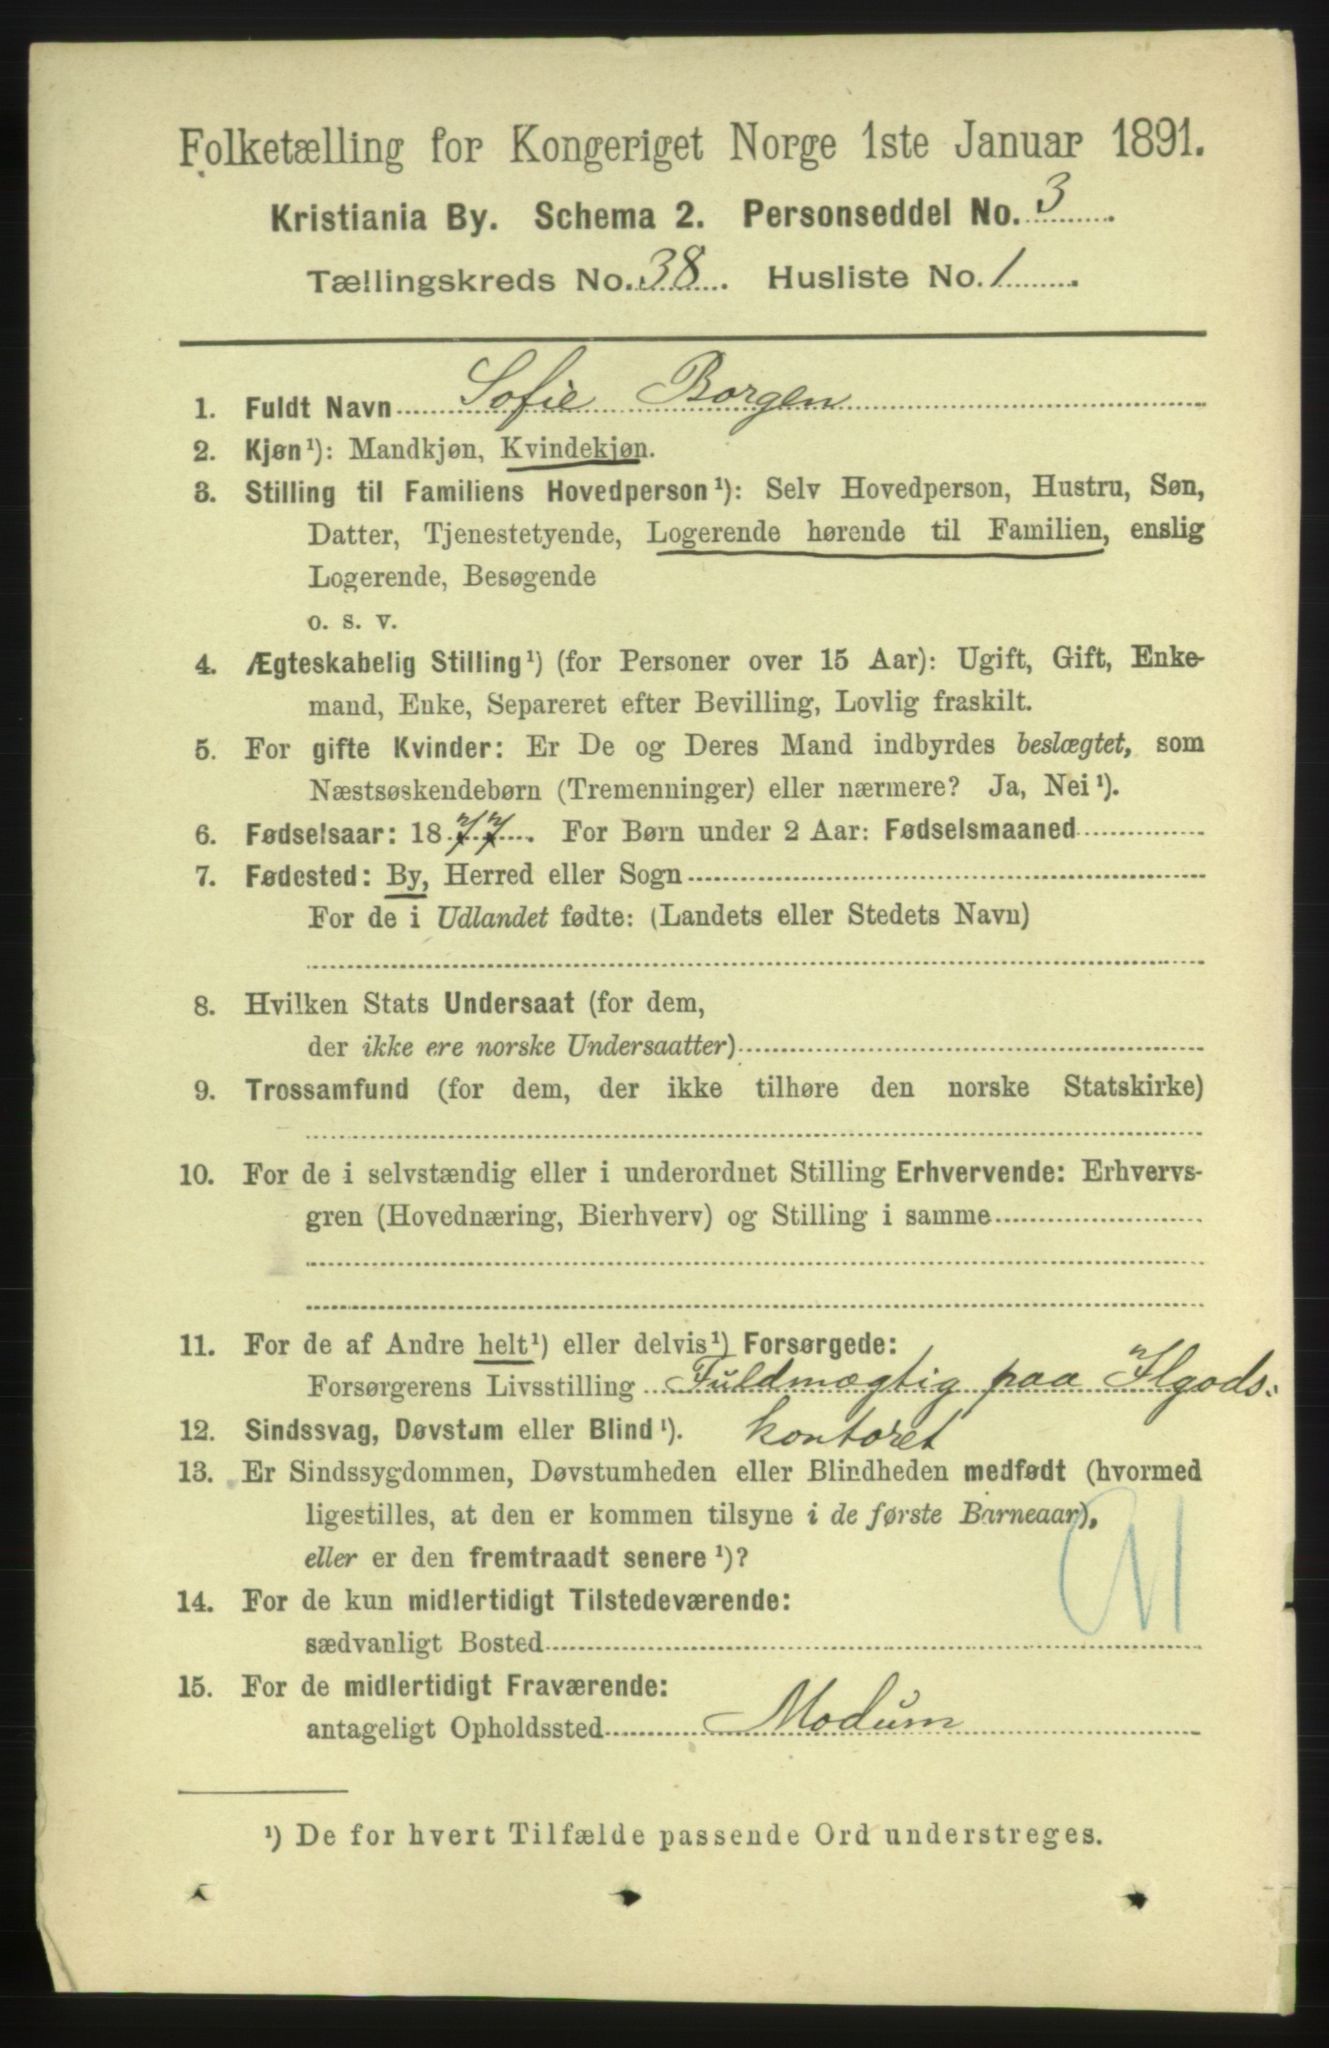 Folketælling for Kongeriget Norge 1ste Januar 1891.
Kristiania By. Schema 2. Personseddel No. 3.
Tællingskreds No. 38. Husliste No. 1.
1. Fuldt Navn Sofie Borgen
2. Kjøn¹): Mandkjøn, Kvindekjøn.
3. Stilling til Familiens Hovedperson¹): Selv Hovedperson, Hustru, Søn,
Datter, Tjenestetyende, Logerende hørende til Familien, enslig
Logerende, Besøgende
o. s. v.
4. Ægteskabelig Stilling¹) (for Personer over 15 Aar): Ugift, Gift, Enke-
mand, Enke, Separeret efter Bevilling, Lovlig fraskilt.
5. For gifte Kvinder: Er De og Deres Mand indbyrdes beslægtet, som
Næstsøskendebørn (Tremenninger) eller nærmere? Ja, Nei¹).
6. Fødselsaar: 1877. For Børn under 2 Aar: Fødselsmaaned
7. Fødested: By, Herred eller Sogn
For de i Udlandet fødte: (Landets eller Stedets Navn)
8. Hvilken Stats Undersaat (for dem,
der ikke ere norske Undersaatter)
9. Trossamfund (for dem, der ikke tilhøre den norske Statskirke)
10. For de i selvstændig eller i underordnet Stilling Erhvervende: Erhvervs-
gren (Hovednæring, Bierhverv) og Stilling i samme
11. For de af Andre helt¹) eller delvis¹) Forsørgede:
Forsørgerens Livsstilling Fuldmægtig paa Ilgods-
12. Sindssvag, Døvstum eller Blind¹). kontoret
13. Er Sindssygdommen, Døvstumheden eller Blindheden medfødt (hvormed
ligestilles, at den er kommen tilsyne i de første Barneaar),
eller er den fremtraadt senere¹)?
14. For de kun midlertidigt Tilstedeværende:
sædvanligt Bosted
15. For de midlertidigt Fraværende:
antageligt Opholdssted Modum
¹) De for hvert Tilfælde passende Ord understreges.